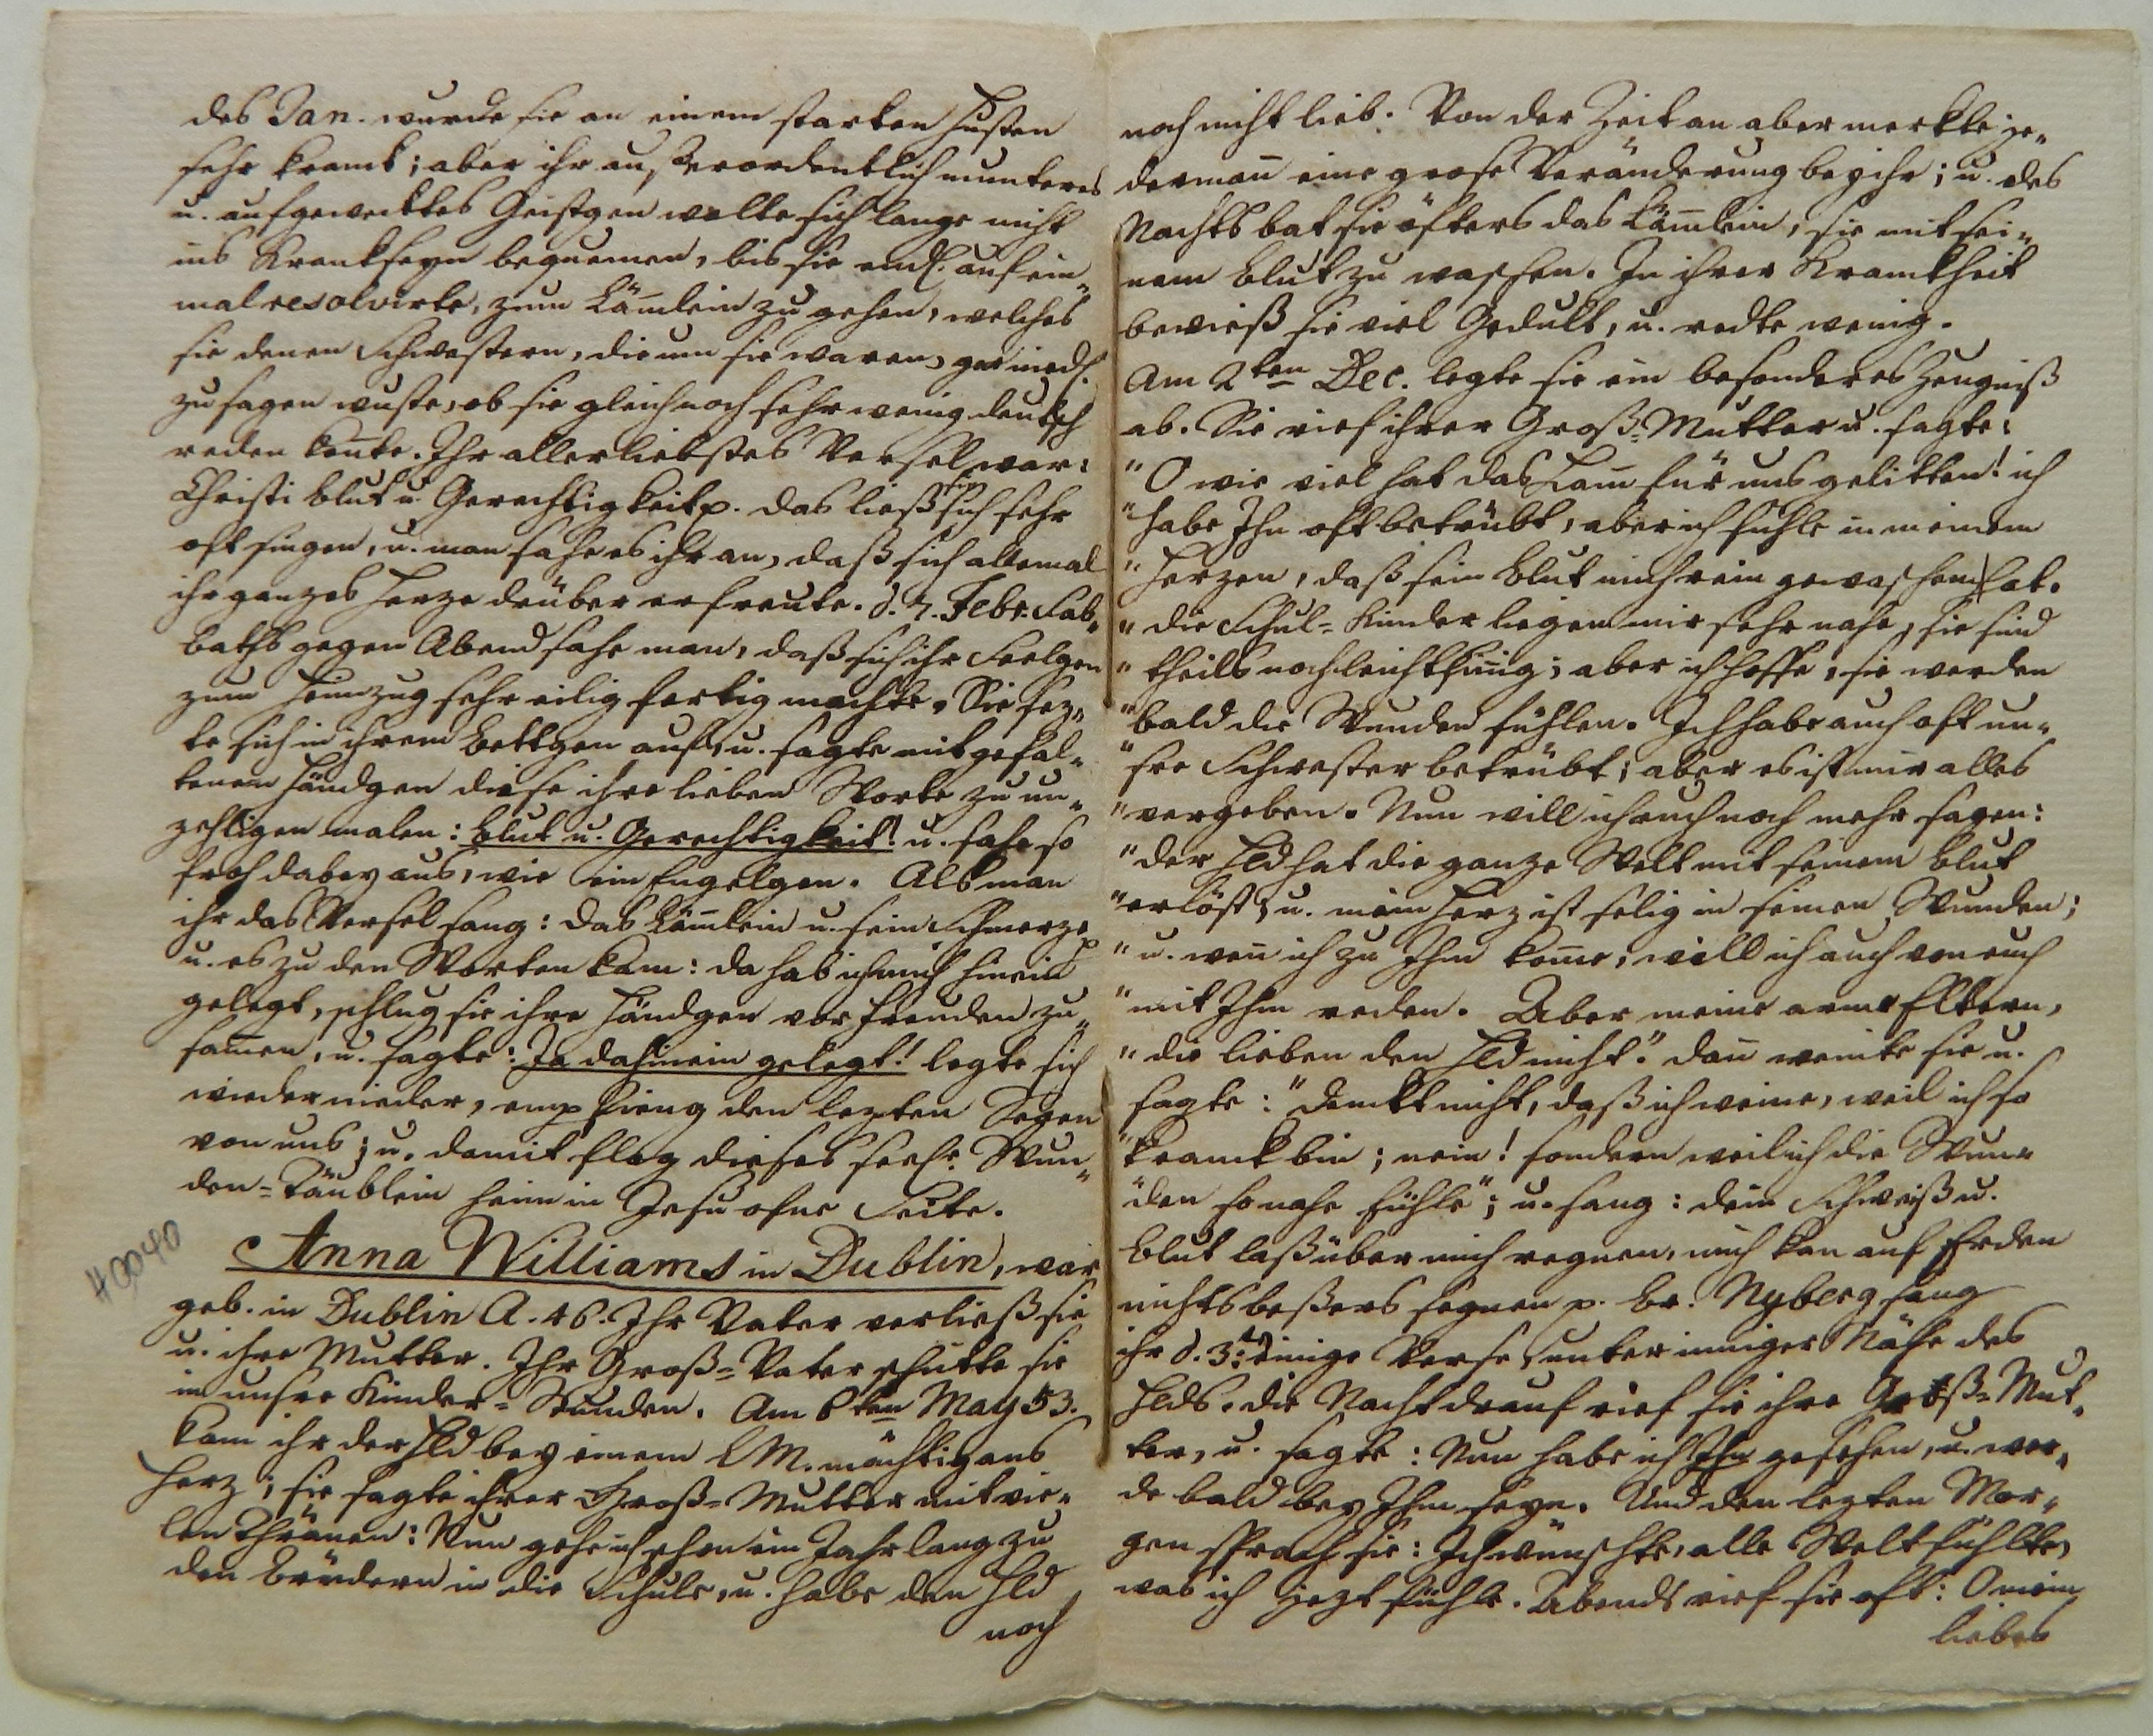 des Jan. wurde sie an einem starken Husten
sehr kranck; aber ihr außerordentlich munteres
u. aufgewecktes Geistgen wolte sich lange nicht
ins Krankseyn bequemen, bis sie endl. auf ein„
mal resolvirte, zum Läm̅lein zu gehen, welches
sie denen Schwestern, die um sie waren, gar niedl.
zu sagen wuste, ob sie gleich noch sehr wenig deutsch
reden kon̅te. Ihr allerliebstes Versel war:
Christi Blut u. Gerechtigkeit p. das ließ sie sich sehr
oft singen, u. man sahe es ihr an, daß sich allemal
ihr ganzes Herze drüber erfreute. d. 7. Febr. Sab„
baths gegen Abend sahe man, daß sich ihr Seelgen
zum Heimzug sehr eilig fertig machte. Sie sez„
te sich in ihrem Bettgen auf, u. sagte mit gefal„
tenen Händgen diese ihre lieben Worte zu un„
zehligen malen: Blut u. Gerechtigkeit! u. sahe so
froh dabey aus, wie ein Engelgen. Als man
ihr das Versel sang: Das Läm̅lein u. sein Schmerze p
u. es zu den Worten kam: da hab ich mich hinein
gelegt, schlug sie ihre Händgen vor Freuden zu„
sam̅en, u. sagte: Ja dahinein gelegt! legte sich
wieder nieder, empfieng den lezten Segen
von uns; u. damit flog dieses seel. Wun„
den-Täublein heim in Jesu ofne Seite.
Anna Williams in Dublin, war
40040
geb. in Dublin A. 46. Ihr Vater verließ sie
u. ihre Mutter. Ihr Groß-Vater schikte sie
in unsre Kinder-Stunden. Am 6ten May 53.
kam ihr der Hld bey einem LM. mächtig ans
Herz; sie sagte ihrer Groß-Mutter mit vie„
len Thränen: Nun gehe ich schon ein Jahr lang zu
den Brüdern in die Schule, u. habe den Hld
noch
noch nicht lieb. Von der Zeit an aber merkte je„
derman̅ eine grose Veränderung bey ihr; u. des
Nachts bat sie öfters das Läm̅lein, sie mit sei„
nem Blut zu waschen. In ihrer Kranckheit
bewieß sie viel Gedult, u. redte wenig.
Am 2ten Dec. legte sie ein besonderes Zeugniß
ab. Sie rief ihrer Groß-Mutter u. sagte:
"O wie viel hat das Lam̅ für uns gelitten! ich
"habe Ihn oft betrübt, aber ich fühle in meinem
"Herzen, daß sein Blut mich rein gewaschen hat.
"die Schul-Kinder liegen mir sehr nahe, sie sind
"theils noch leichtsin̅ig; aber ich hoffe, sie werden
"bald die Wunden fühlen. Ich habe auch oft un„
"sre Schwester betrübt; aber es ist mir alles
"vergeben. Nun will ich auch noch mehr sagen:
"der Hld hat die ganze Welt mit seinem Blut
"erlöst, u. mein Herz ist selig in seinen Wunden;
"u. wen̅ ich zu Ihm kom̅e, will ich auch von euch
"mit Ihm reden. Aber meine arme Eltern,
"die lieben den Hld nicht." dan̅ weinte sie u.
sagte: "Denckt nicht, daß ich weine, weil ich so
"kranck bin; nein! sondern weil ich die Wun„
"den so nahe fühle"; u. sang: dein Schweiß u.
Blut laß über mich regnen, mich kan auf Erden
nichts beßers segnen p. Br. Nyberg sang
ihr d. 3ten einige Verse, unter inniger Nähe des
Hlds. die Nacht drauf rief sie ihre Groß-Mut„
ter, u. sagte: Nun habe ich Ihn gesehen, u. wer„
de bald bey Ihm seyn. Und den lezten Mor„
gen sprach sie: Ich wünschte, alle Welt fühlte,
was ich jezt fühle. Abends rief sie oft: O mein
liebes